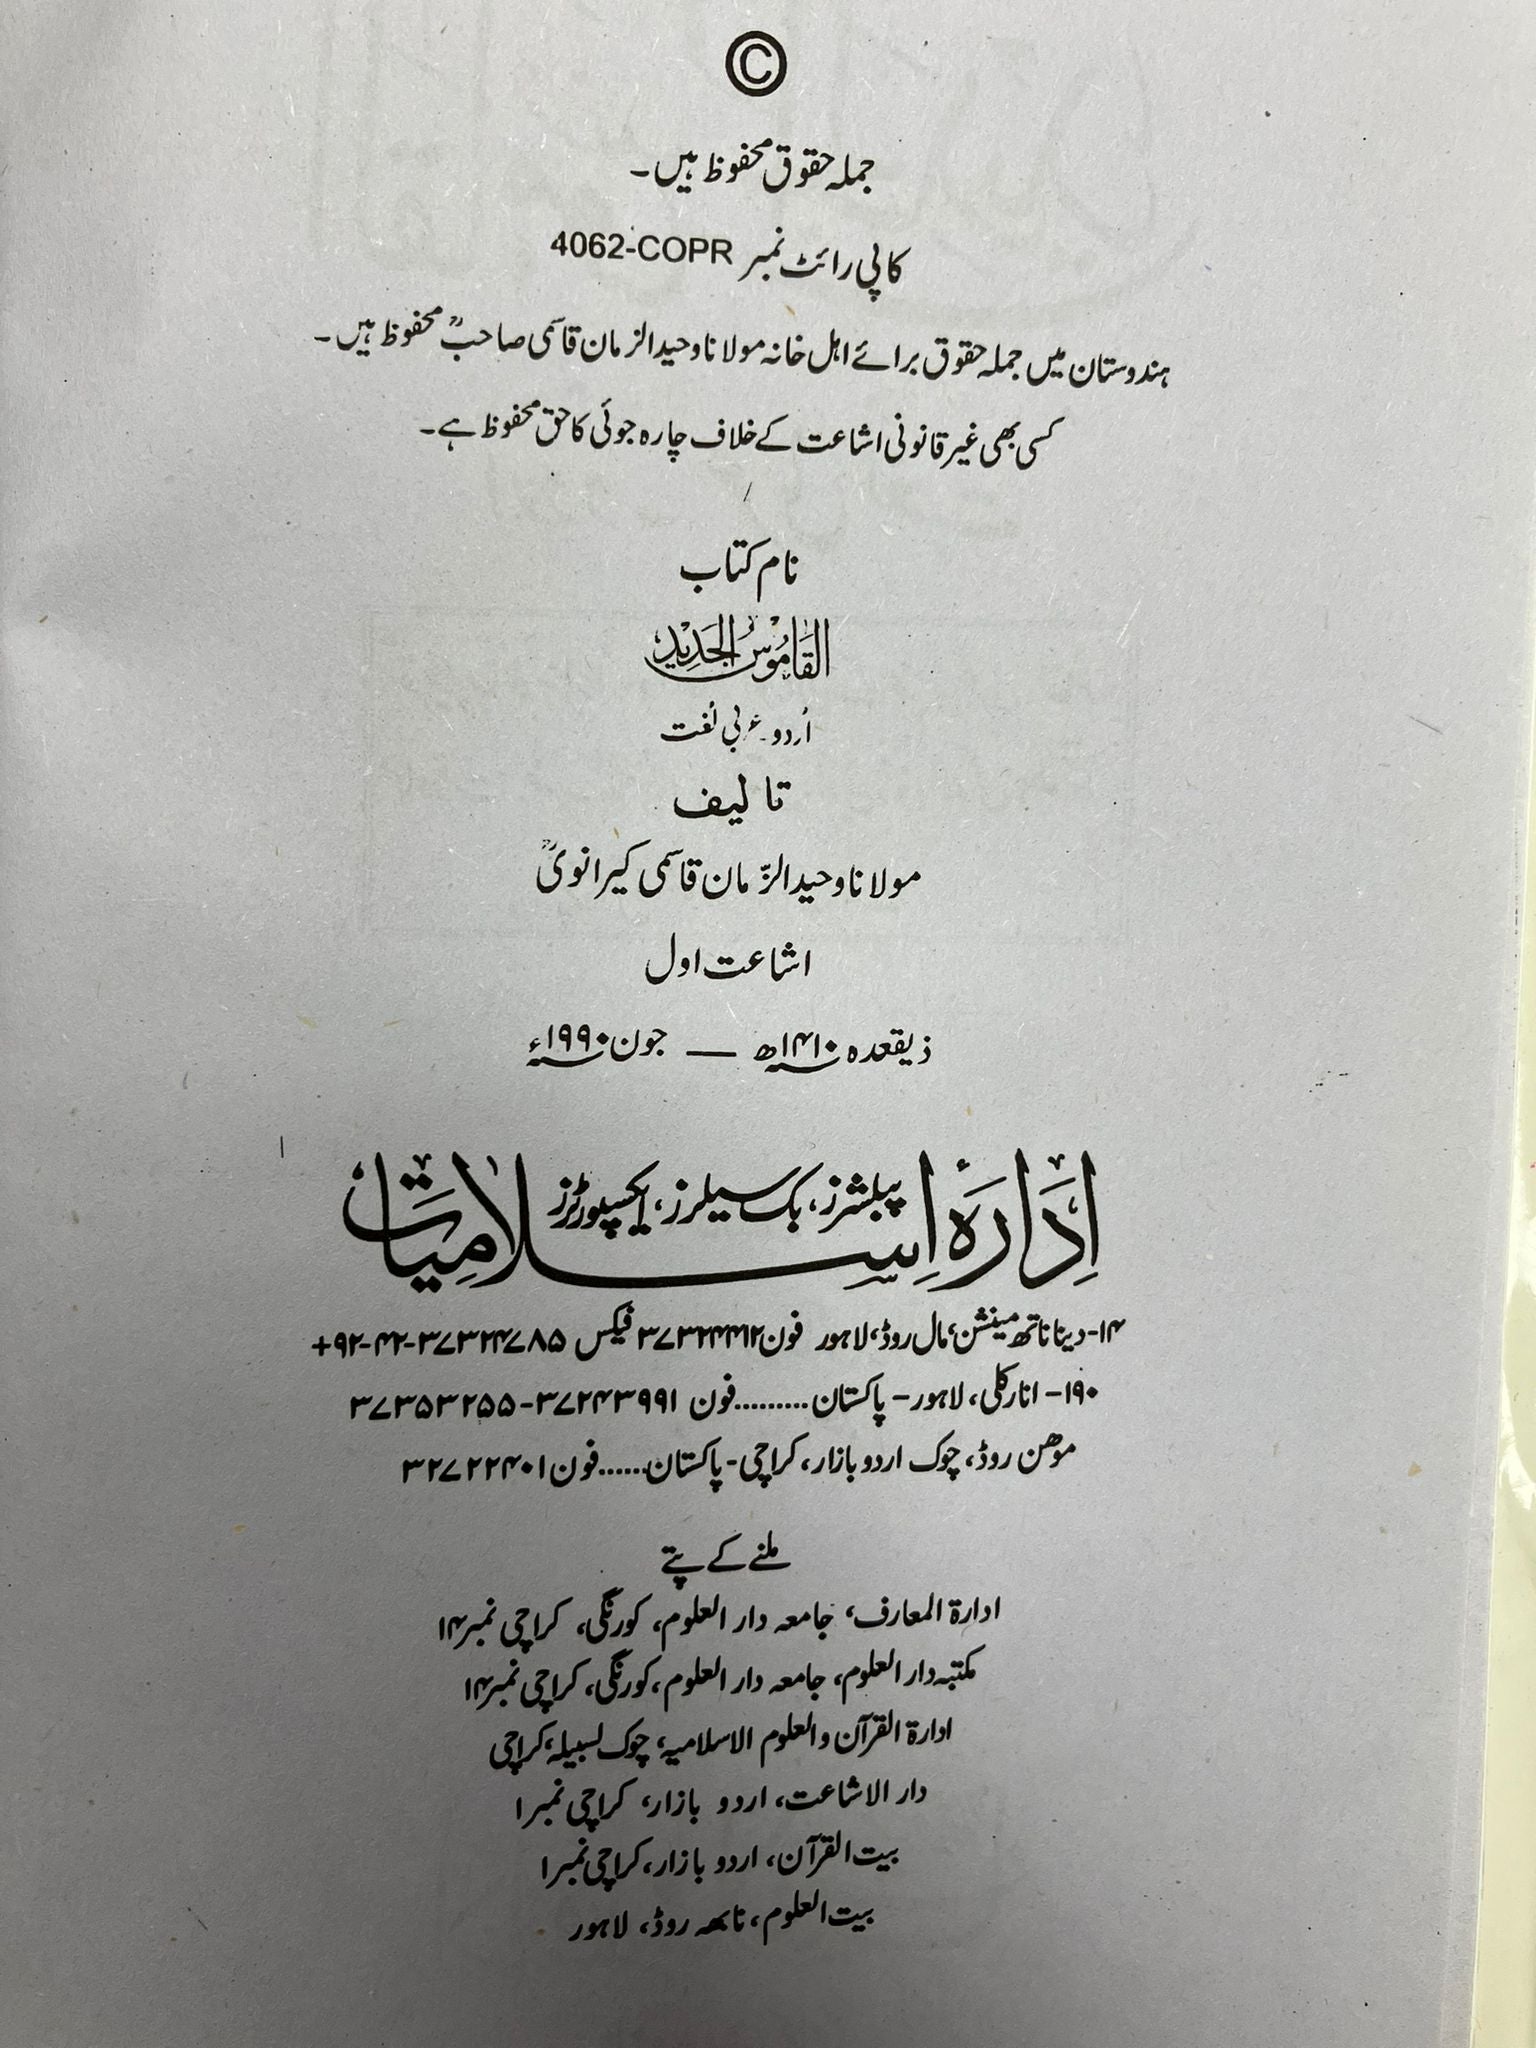 ©
جملہ حقوق محفوظ ہیں۔
کاپی رائٹ نمبر 4062-COPR
ہندوستان میں جملہ حقوق برائے اہل خانہ مولانا وحیدالزمان قاسمی صاحبؒ محفوظ ہیں۔
کسی بھی غیر قانونی اشاعت کے خلاف چارہ جوئی کا حق محفوظ ہے۔
نام کتاب
القَامُوسُ الجَدِيْد
اُردو۔عربی لغت
تالیف
مولانا وحیدالزّمان قاسمی کیرانویؒ
اشاعت اول
ذیقعدہ ۱۴۱۰ھ — جون ۱۹۹۰ء
اِدَارَۂ اِسلامیات
پبلشرز، بک سیلرز، ایکسپورٹرز
۱۴-دینا ناتھ مینشن، مال روڈ، لاہور فون ۳۷۳۲۴۴۱۲ فیکس ۳۷۳۲۴۷۸۵-۴۲-۹۲+
۱۹۰- انارکلی، لاہور- پاکستان.........فون ۳۷۲۴۳۹۹۱-۳۷۳۵۳۲۵۵
موھن روڈ، چوک اردو بازار، کراچی-پاکستان......فون ۳۲۷۲۲۴۰۱
ملنے کے پتے
ادارۃ المعارف، جامعہ دار العلوم، کورنگی، کراچی نمبر ۱۴
مکتبہ دار العلوم، جامعہ دار العلوم، کورنگی، کراچی نمبر ۱۴
ادارۃ القرآن والعلوم الاسلامیہ، چوک لسبیلہ، کراچی
دار الاشاعت، اردو بازار، کراچی نمبر ۱
بیت القرآن، اردو بازار، کراچی نمبر ۱
بیت العلوم، نابھہ روڈ، لاہور